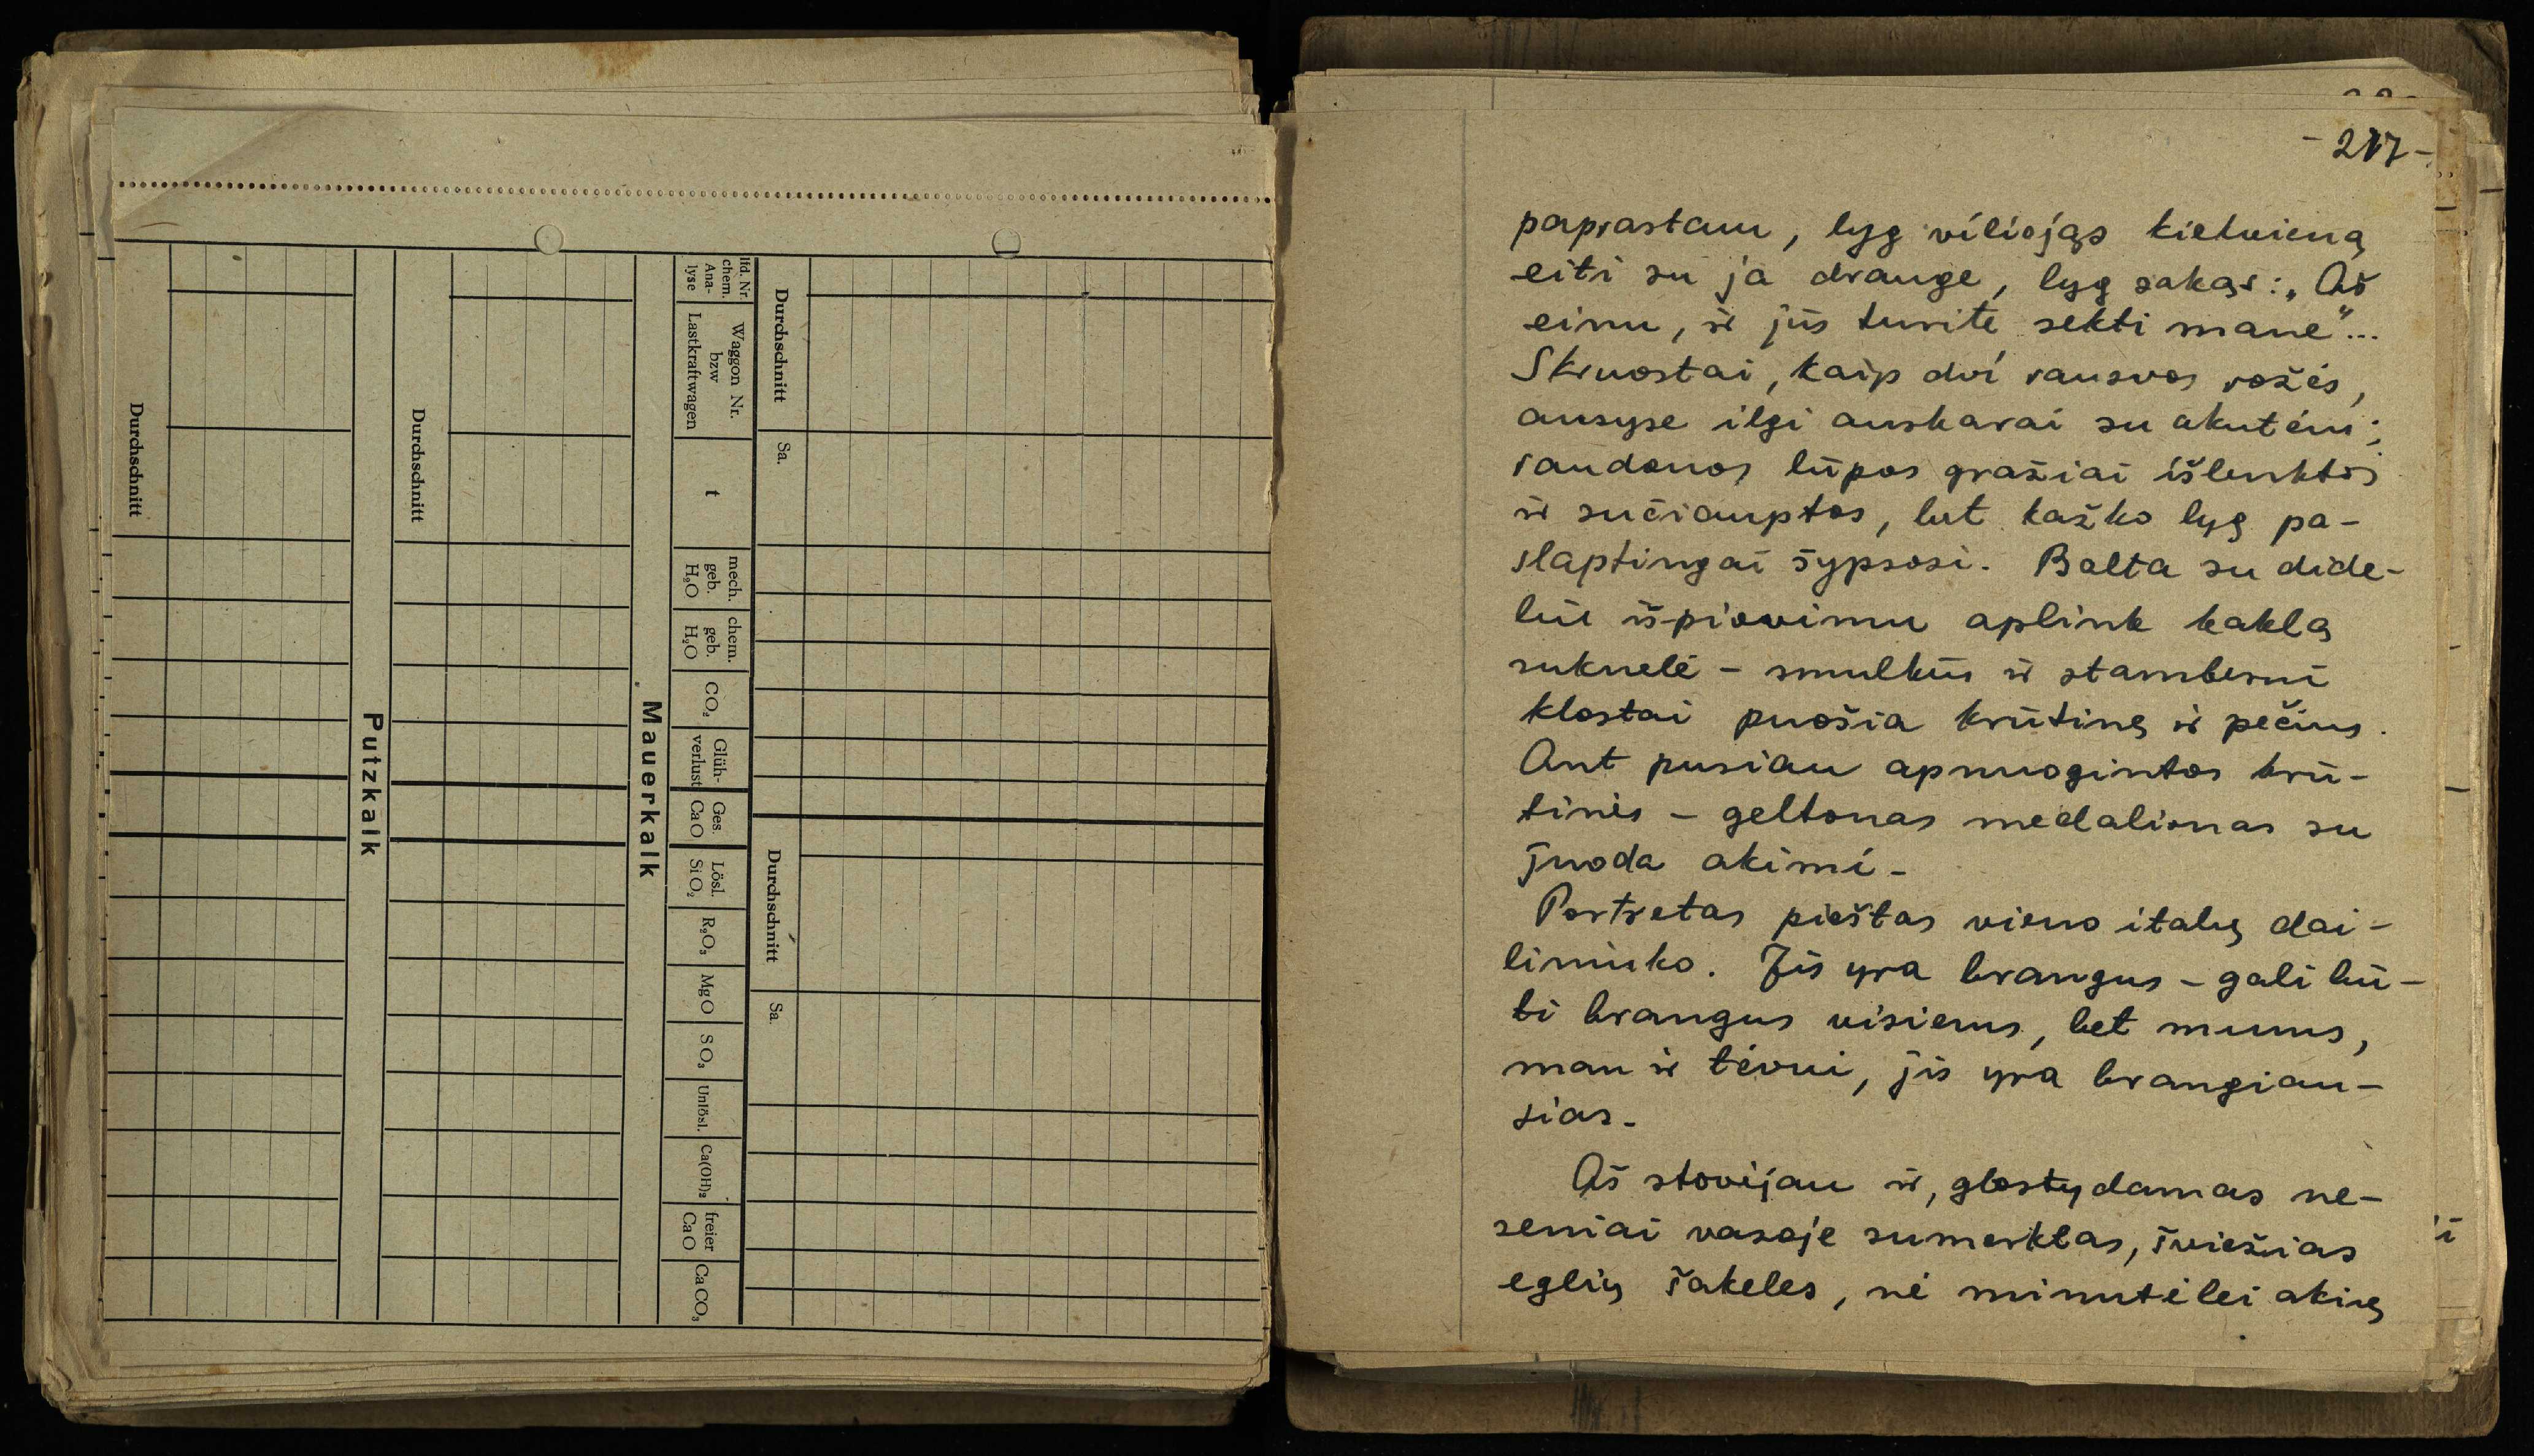 Durchschnitt
Putzkalk
Durchschnitt
Mauerkalk
lfd. Nr.
chem.
Ana-
lyse
Waggon Nr.
bzw
Lastkraftwagen
t
mech.
geb.
H₂O
chem.
geb.
H₂O
CO₂
Glüh-
verlust
Ges.
CaO
Lösl.
SiO₂
R₂O₃
MgO
SO₃
Unlösl.
Ca(OH)₂
freier
CaO
CaCO₃
Durchschnitt
Sa.
Durchschnitt
Sa.
- 217 -
paprastam, lyg viliojąs kiekvieną
eiti su ja drauge, lyg sakąs: „Aš
einu, ir jūs turite sekti mane"...
Skruostai, kaip dvi rausvos rožės,
ausyse ilgi auskarai su akutėm;
raudonos lūpos gražiai išlenktos
ir sučiauptos, bet kažko lyg pa-
slaptingai šypsosi. Balta su dide-
liu išpiovimu aplink kaklą
suknelė - smulkūs ir stambesni
klostai puošia krūtinę ir pečius.
Ant pusiau apnuogintos krū-
tinės - geltonas medalionas su
juoda akimi.
Portretas pieštas vieno italų dai-
lininko. Jis yra brangus - gali bū-
ti brangus visiems, bet mums,
man ir tėvui, jis yra brangiau-
sias.
Aš stovėjau ir, glostydamas ne-
seniai vazoje sumerktas, šviežias
eglių šakeles, nė minutėlei akių